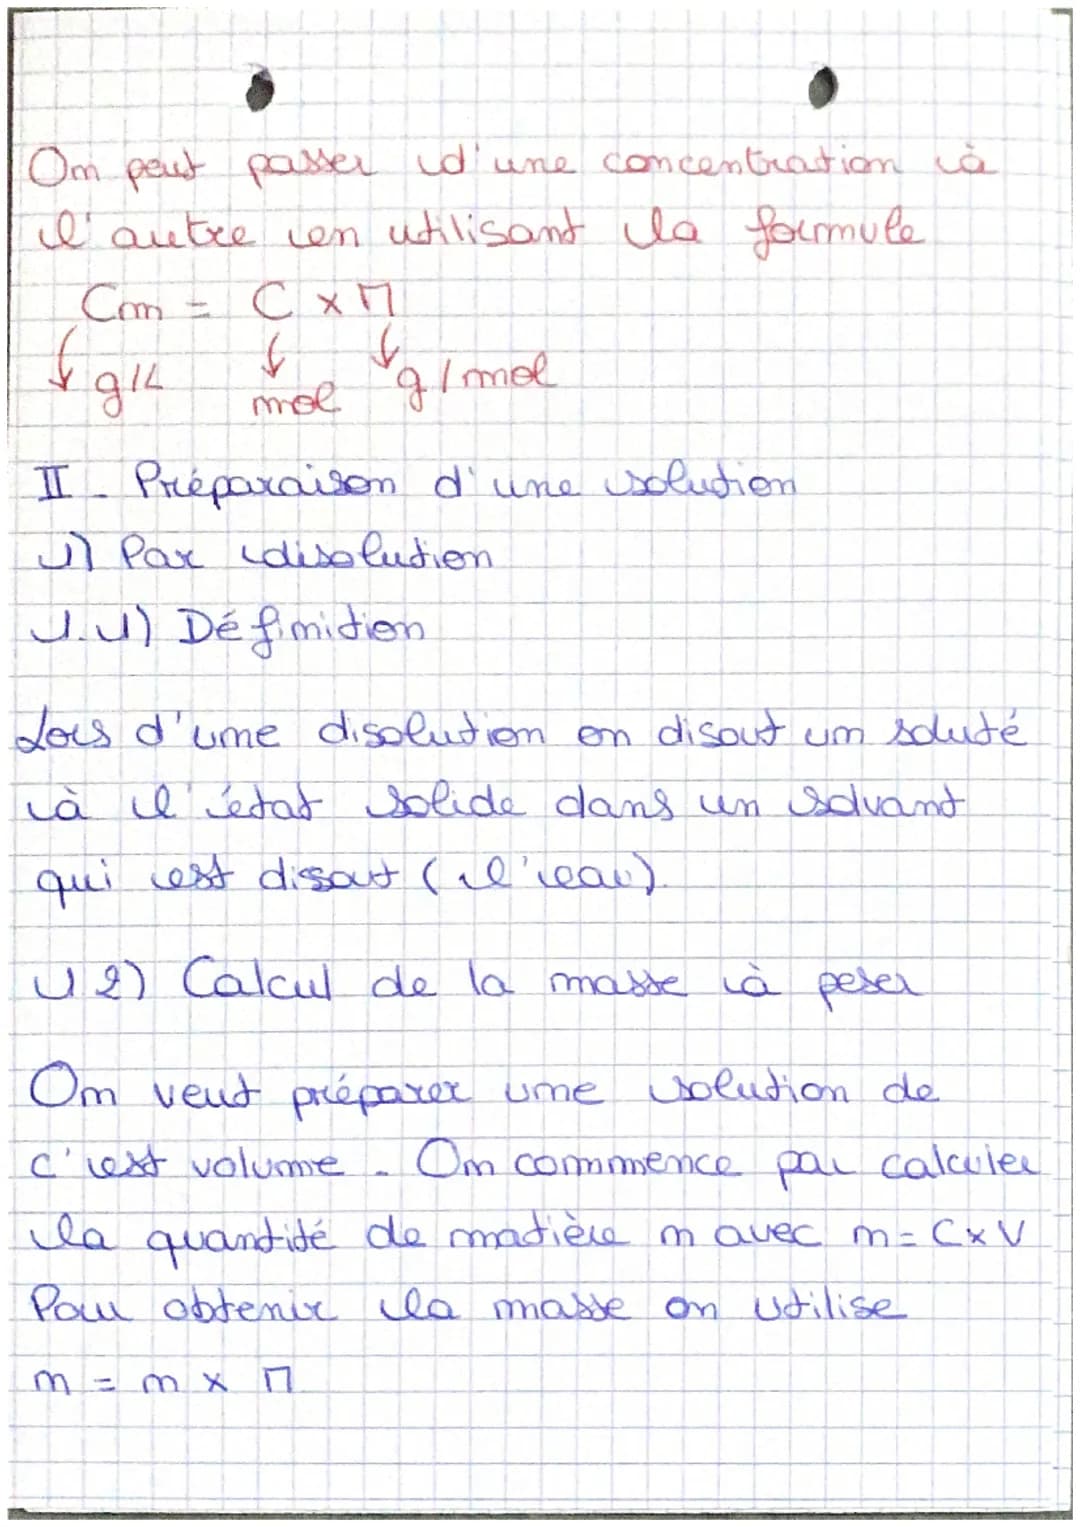 On peut passer d'une concentration à
l'autre en utilisant la formule
Cm = C x M
g/L mol g/mol
II - Préparaison d'une solution
1) Par disolution
1.1) Définition
Lors d'une disolution on disout un soluté
à l'état solide dans un solvant
qui est disout (l'eau).
1 2) Calcul de la masse à peser
On veut préparer une solution de
c'est volume. On commence par calculer
la quantité de matière n avec n = C x V
Pour obtenir la masse on utilise
m = n x M